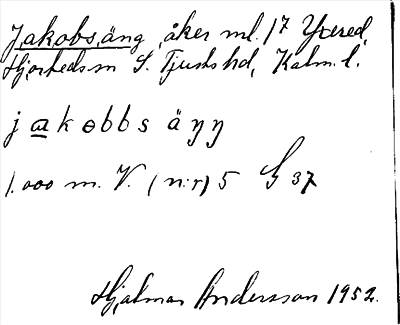 Jakobsäng, åker ml. 17 Yxered,
Hjorteds sn S. Tjusts hd, Kalm. l.
jakobbs äŋŋ
1.000 m. V. (n:r) 5 G 37
Hjalmar Andersson 1952.